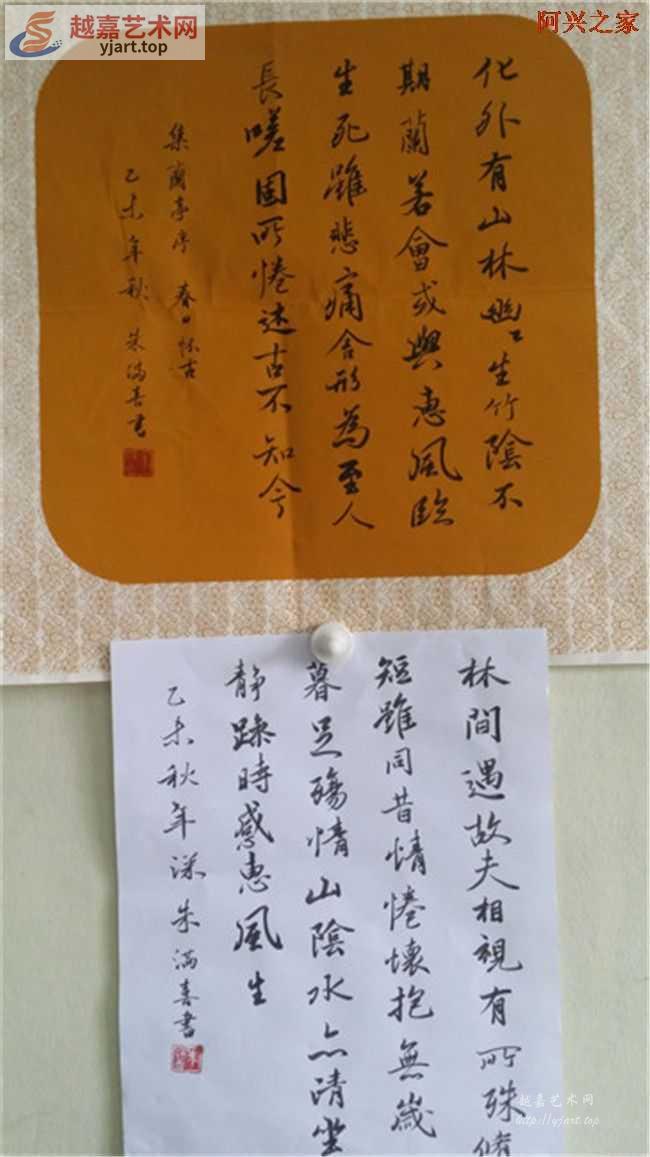 越嘉艺术网
yjart.top
阿兴之家
化外有山林幽〻生竹陰不
期蘭若會或與惠風臨
生死雖悲痛舍形為至人
長嗟固所惓述古不知今
集蘭亭序 春日怀古
乙未年秋 朱满喜書
林間遇故夫相視有所殊脩
短雖同昔情惓懷抱無歲
暮足殤情山陰水亦清坐
靜躁時感惠風生
乙未秋年深朱满喜書
越嘉艺术网
http://yjart.top